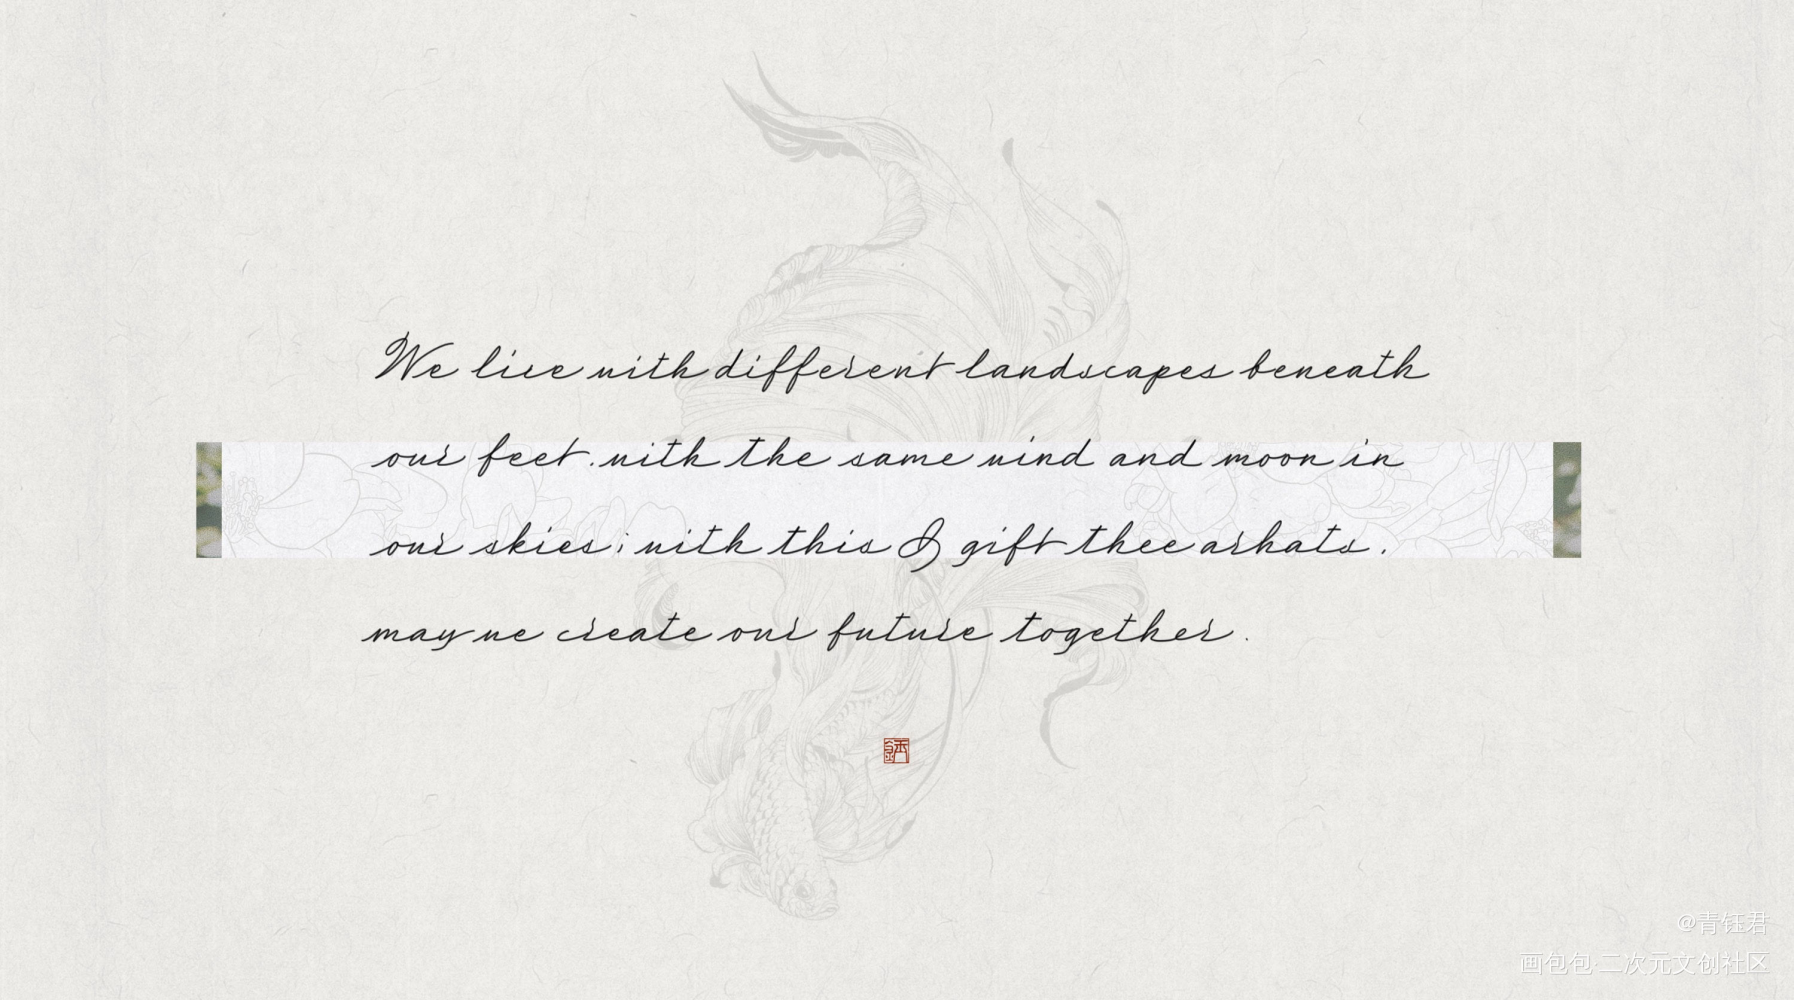 We live with different landscapes beneath
our feet. with the same wind and moon in
our skies; with this I gift thee arhats.
may we create our future together.
@青钰君
画包包·二次元文创社区